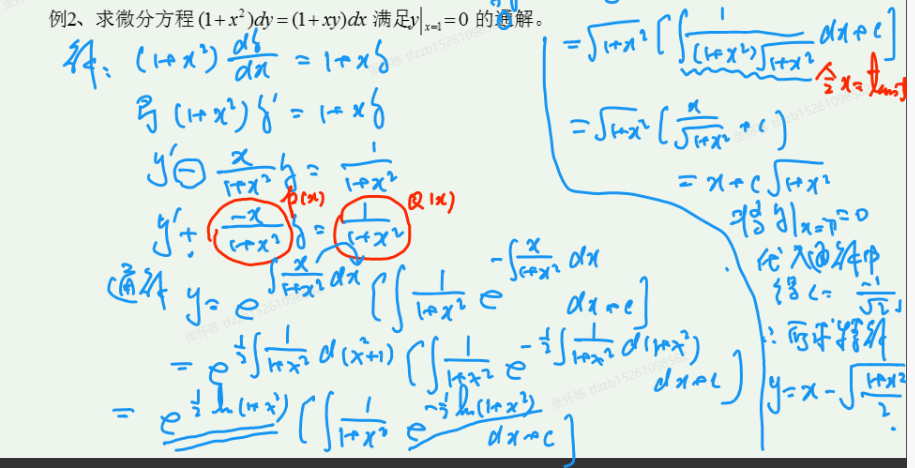 例2、求微分方程 (1+x²)dy=(1+xy)dx 满足y|ₓ₌₁=0 的通解。
解: (1+x²) dy/dx = 1+xy
即 (1+x²) y' = 1+xy
y' - x/(1+x²) y = 1/(1+x²)
y' + (-x)/(1+x²) y = 1/(1+x²) P(x) Q(x)
通解 y = e^(∫ x/(1+x²) dx) [∫ 1/(1+x²) e^(-∫ x/(1+x²) dx) dx+C]
= e^(½∫ 1/(1+x²) d(x²+1)) [∫ 1/(1+x²) e^(-½∫ 1/(1+x²) d(1+x²)) dx+C]
= e^(½ ln(1+x²)) [∫ 1/(1+x²) e^(-½ ln(1+x²)) dx+C]
= √(1+x²) [∫ 1/((1+x²)√(1+x²)) dx+C]
令 x=tant
= √(1+x²) [x/√(1+x²) + C]
= x+C√(1+x²)
将 y|ₓ₌₁=0
代入通解中
得 C= -1/√2
∴ 所求特解
y=x-√((1+x²)/2).